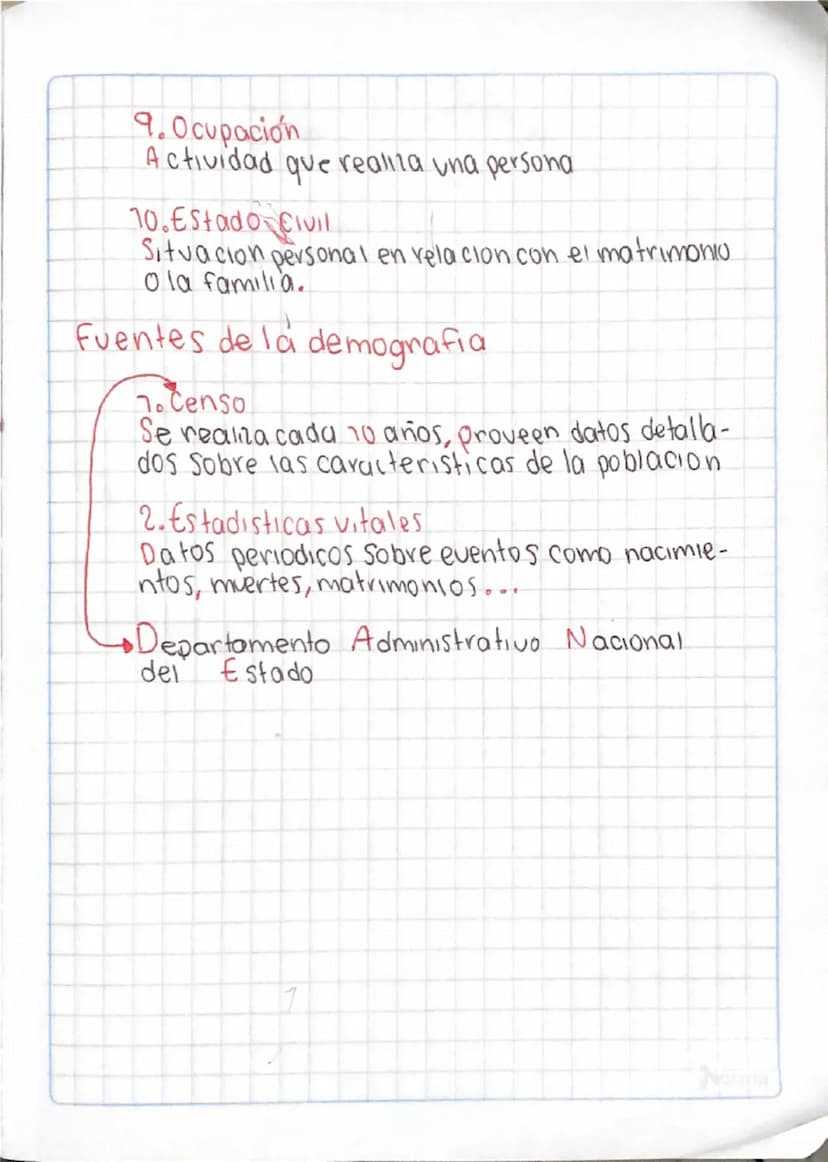 9. Ocupación
Actividad que realiza una persona
10. Estado Civil
Situacion personal en relacion con el matrimonio
o la familia.
Fuentes de la demografia
1. Censo
Se realiza cada 10 años, proveen datos detalla-
dos sobre las caracteristicas de la poblacion
2. Estadisticas vitales
Datos periodicos sobre eventos como nacimie-
ntos, muertes, matrimonios...
Departamento Administrativo Nacional
del Estado
1
Norma